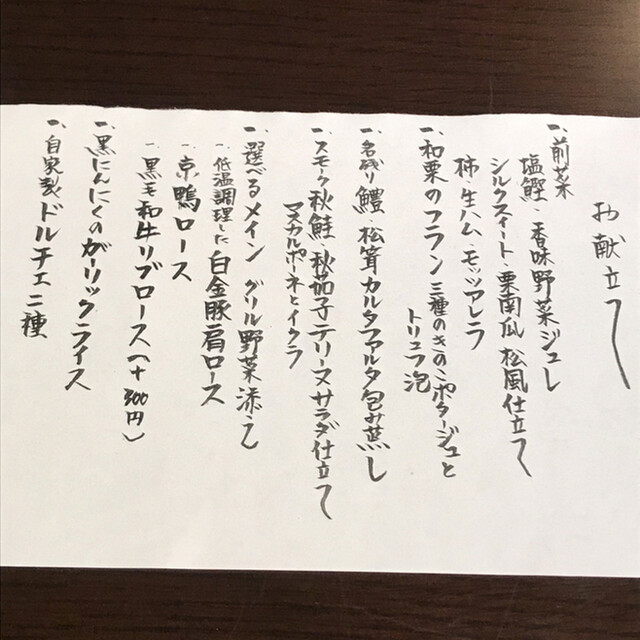 お献立て
一、前菜
塩鰹・香味野菜ジュレ
シルクスイート・栗南瓜 松風仕立て
柿・生ハム・モッツアレラ
一、和栗のフラン 三種のきのこポタージュと
トリュフ泡
一、名残り鱧 松茸カルタファルタ包み蒸し
一、スモーク秋鮭・秋茄子テリーヌサラダ仕立て
マスカルポーネとイクラ
一、選べるメイン グリル野菜添え
一、低温調理した白金豚肩ロース
一、京鴨ロース
一、黒毛和牛リブロース(+300円)
一、黒にんにくのガーリックライス
一、自家製ドルチェ二種